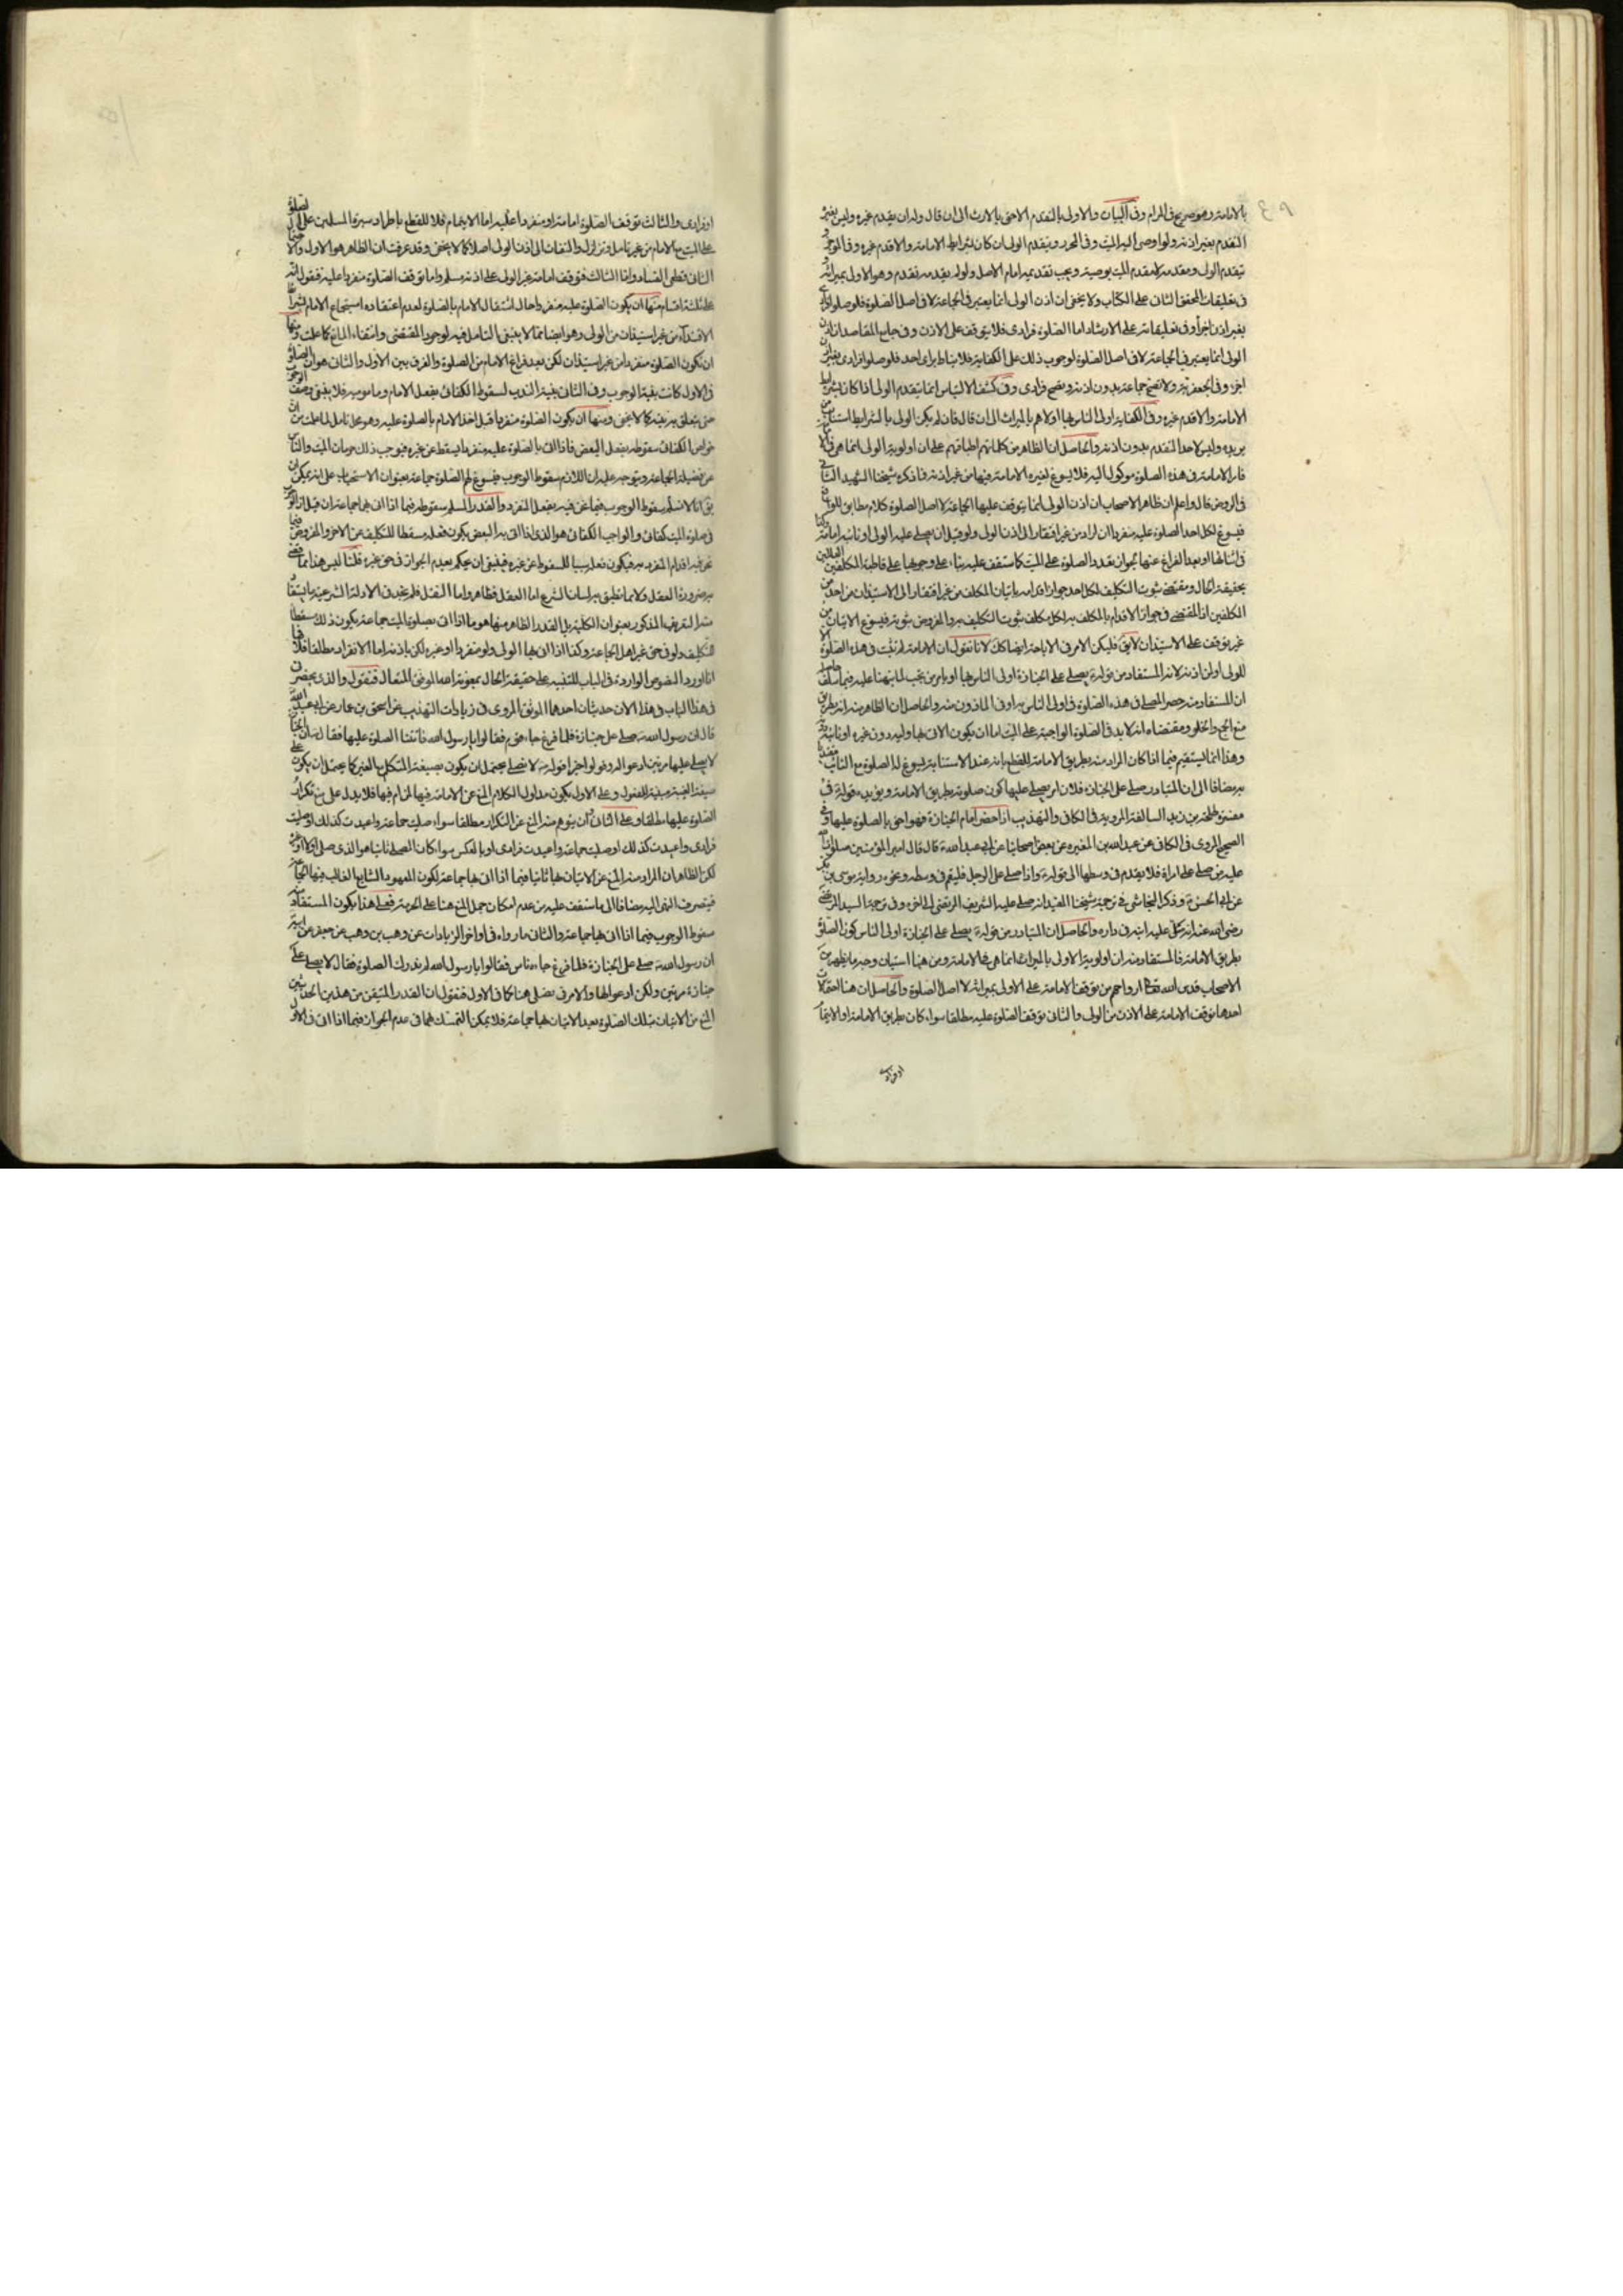 بالامامة وهو صريح في المرام وفي البيان والاولى بالتقدم الاحق بالارث الى ان قال وله ان يقدم غيره وليس لغيره
التقدم بغير اذنه ولو اوصى اليه الميت وفي التحرير ويقدم الولي ان كان بشرايط الامامة والا قدم غيره وفي الموجز و
يتقدم الولي ومقدمه لا مقدم الميت بوصيته ويجب تقديم امام الاصل ولو لم يقدمه تقدم وهو الاولى بميراثه و
في تعليقات المحقق الثاني على الكتاب ولا يخفى ان اذن الولي انما يعتبر في الجماعة لا في اصل الصلوة فلو صلوا فرادى
بغير اذن اجزأ وفي تعليقاته على الارشاد اما الصلوة فرادى فلا يتوقف على الاذن وفي جامع المقاصد ان اذن
الولي انما يعتبر في الجماعة لا في اصل الصلوة لوجوب ذلك على الكفاية فلا يناط براي احد فلو صلوا فرادى بغير اذن
اجزء وفي الجعفرية ولا تصح جماعة بدون اذنه وتصح فرادى وفي كشف الالتباس انما يتقدم الولي اذا كان بشرايط
الامامة والا قدم غيره وفي الكفاية اولى الناس بها اولاهم بالميراث الى ان قال فان لم يكن الولي بالشرايط استناب من
يريده وليس لاحد التقدم بدون اذنه والحاصل ان الظاهر من كلماتهم اطباقهم على ان اولوية الولي انما هي في الامامة
فان الامامة في هذه الصلوة موكول اليه فلا يسوغ لغيره الامامة فيها من غير اذنه فما ذكره شيخنا الشهيد الثاني
في الروض قال واعلم ان ظاهر الاصحاب ان اذن الولي انما يتوقف عليها الجماعة لا اصل الصلوة كلام مطابق للواقع
فيسوغ لكل احد الصلوة عليه منفردا ان اراد من غير افتقار الى اذن الولي ولو قبل ان يصلي عليه الولي او نائبه امامة
في اثنائها او بعد الفراغ عنها لجواز تعدد الصلوة على الميت كما ستقف عليه بناء على وجوبها على قاطبة المكلفين
بحقيقة الحال ومقتضى ثبوت التكليف لكل احد جواز اقدامه باتيان المكلف من غير افتقار الى الاستيذان من احد من
المكلفين اذ المقتضي في جواز الاقدام بالمكلف به لكل مكلف ثبوت التكليف به والمفروض ثبوته فيسوغ الاتيان من
غير توقف على الاستيذان لا يق فليكن الامر في الامامة ايضا كك لانا نقول ان الامامة لم تثبت في هذه الصلوة الا
للولي او لمن اذنه لانه المستفاد من قوله يصلي على الجنازة اولى الناس بها او يامر من يحب لما نبهنا عليه فيما سلف
ان المستفاد منه حصر المصلي في هذه الصلوة في اولى الناس به او في الماذون منه والحاصل ان الظاهر منه انه بطريق
منع الجمع والخلو ومقتضاه انه لا بد في الصلوة الواجبة على الميت اما ان يكون الاتي بها وليه دون غيره او نائبه
وهذا انما يستقيم فيما اذا كان المراد منه بطريق الامامة للقطع بانه عند الاستنابة يسوغ له الصلوة مع النائب
به مضافا الى ان المتبادر صلى على الجنازة فلان او يصلي عليها كون صلوته بطريق الامامة ويؤيده قوله في
معتبرة طلحة بن زيد السالفة المروية في الكافي والتهذيب اذا حضر امام الجنازة فهو احق بالصلوة عليها وفي
الصحيح المروي في الكافي عن عبد الله بن المغيرة عن بعض اصحابنا عن ابي عبد الله قال قال امير المؤمنين صلوات الله
عليه من صلى على امراة فلا يقدم في وسطها الى قوله واذا صلى على الرجل فليقم في وسطه ونحوه رواية موسى بن بكر
عن ابي الحسن وذكر النجاشي في ترجمة شيخنا المفيد انه صلى عليه الشريف المرتضى الى اخره وفي ترجمة السيد المرتضى
رضي الله عنه انه صلى عليه ابنه في داره والحاصل ان المتبادر من قوله يصلي على الجنازة اولى الناس كون الصلوة
بطريق الامامة فالمستفاد منه ان اولوية الاولى بالميراث انما هي في الامامة ومن هنا استبان وجه ما يظهر من
الاصحاب قدس الله تعالى ارواحهم من توقف الامامة على الاولى بميراثه لا اصل الصلوة والحاصل ان هنا احتمالات
احدها توقف الامامة على الاذن من الولي والثاني توقف الصلوة عليه مطلقا سواء كان بطريق الامامة او الايتمام
او فرادى
او فرادى والثالث توقف الصلوة امامة او منفردا عليه اما الايتمام فلا للقطع باطراد سيرة المسلمين على الصلوة
على الميت مع الامام من غير تامل وتزلزل والتفات الى اذن الولي اصلا كما لا يخفى وقد عرفت ان الظاهر هو الاول والاحتمال
الثاني قطعي الفساد واما الثالث فتوقف امامة غير الولي على اذنه مسلم واما توقف الصلوة منفردا عليه فنقول انه
على ثلثة اقسام منها ان يكون الصلوة عليه منفردا حال اشتغال الامام بالصلوة لعدم اعتقاده استجماع الامام لشرايط
الاقتداء من غير استيذان من الولي وهو ايضا مما لا ينبغي التامل فيه لوجود المقتضي وانتفاء المانع كما علمت ومنها
ان تكون الصلوة منفردا من غير استيذان لكن بعد فراغ الامام من الصلوة والفرق بين الاول والثاني هو ان الصلوة
في الاول كانت بنية الوجوب وفي الثاني بنية الندب لسقوط الكفائي بفعل الامام ومامومیه فلا يبقى وصف الوجوب
حتى يتعلق به نيته كما لا يخفى ومنها ان يكون الصلوة منفردا قبل اخذ الامام بالصلوة عليه وهو محل تامل لما علمت من ان
خواص الكفائي سقوطه بفعل البعض فاذا اتى بالصلوة عليه منفردا يسقط عن غيره فيوجب ذلك حرمان الميت والناس
عن فضيلة الجماعة ويتوجه عليه ان اللازم سقوط الوجوب فيسوغ لهم الصلوة جماعة بعنوان الاستحباب على انه يمكن ان
يق انا لا نسلم سقوط الوجوب فيما نحن فيه بفعل المنفرد والقدر المسلم سقوطه فيما اذا اتى بها جماعة ان قيل
في صلوة الميت كفائي والواجب الكفائي هو الذي اذا اتى به البعض يكون فعله مسقطا للتكليف عن الاخر والمفروض فيما
نحن فيه اقدام المنفرد به فيكون فعله سببا للسقوط عن غيره فينبغي ان يحكم بعدم الجواز في حق غيره قلنا ليس هذا مما
بضرورة العقل ولا مما نطق به لسان الشرع اما العقل فظاهر واما النقل فلم نجد في الادلة الشرعية ما يستفاد
منه التعريف المذكور بعنوان الكلية بل القدر الظاهر منها هو ما اذا اتى بصلوة الميت جماعة يكون ذلك مسقطا
للتكليف ولو في حق غير اهل الجماعة وكذا اذا اتى بها الولي ولو منفردا او غيره لكن باذنه اما الانفراد مطلقا فلا
انا نورد النصوص الواردة في الباب للتنبيه على حقيقة الحال بمعونة الله الموفق المتعال فنقول والذي يحضرني
في هذا الباب في هذا الان حديثان احدهما الموثق المروي في زيادات التهذيب عن اسحق بن عمار عن ابي عبد الله
قال ان رسول الله صلى على جنازة فلما فرغ جاءه قوم فقالوا يا رسول الله فاتتنا الصلوة عليها فقال ان الجنازة
لا يصلى عليها مرتين ادعوا له وقولوا خيرا قوله لا نصلي يحتمل ان يكون بصيغة المتكلم مع الغير كما يحتمل ان يكون على
صيغة الغيبة مبنية للمفعول وعلى الاول يكون مدلول الكلام المنع عن الامامة فيها لهم فيها فلا يدل على منع تكرار
الصلوة عليها مطلقا وعلى الثاني ان يتوهم منه المنع عن التكرار مطلقا سواء صليت جماعة واعيدت كذلك او صليت
فرادى واعيدت كذلك او صليت جماعة واعيدت فرادى او بالعكس سواء كان المصلي ثانيا هو الذي صلى اولا او غيره
لكن الظاهر ان المراد منه المنع عن الاتيان بها ثانيا فيما اذا اتى بها جماعة لكون المعهود الشايع الغالب فيها الجماعة
فينصرف النهي اليه مضافا الى ما ستقف عليه من عدم امكان حمل المنع هنا على الحرمة فعلى هذا يكون المستفاد منه
سقوط الوجوب فيما اذا اتى بها جماعة والثاني ما رواه في اواخر الزيادات عن وهب بن وهب عن جعفر عن ابيه
ان رسول الله صلى على الجنازة فلما فرغ جاءه ناس فقالوا يا رسول الله لم ندرك الصلوة فقال لا يصلى على
جنازة مرتين ولكن ادعوا لها والامر في نصلي هنا كما في الاول فنقول ان القدر المتيقن من هذين الحديثين
المنع من الاتيان بتلك الصلوة بعد الاتيان بها جماعة فلا يمكن التمسك بهما في عدم الجواز فيما اذا اتى في الاول